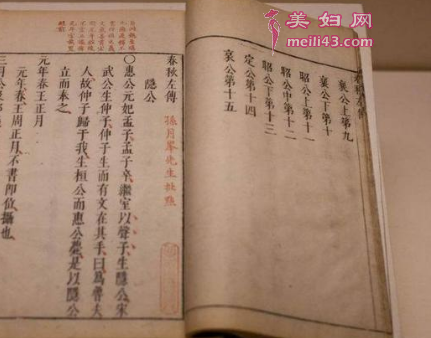 美妇网
meili43.com
春秋左傳
襄公上第九
襄公下第十
昭公上第十一
昭公中第十二
昭公下第十三
定公第十四
哀公第十五
春秋左傳
孫月峯先生批點
隱公
〇惠公元妃孟子孟子卒繼室以聲子生隱公宋
武公生仲子仲子生而有文在其手曰爲魯夫
人故仲子歸于我生桓公而惠公薨是以隱公
立而奉之
元年春王正月
元年春王周正月不書即位攝也